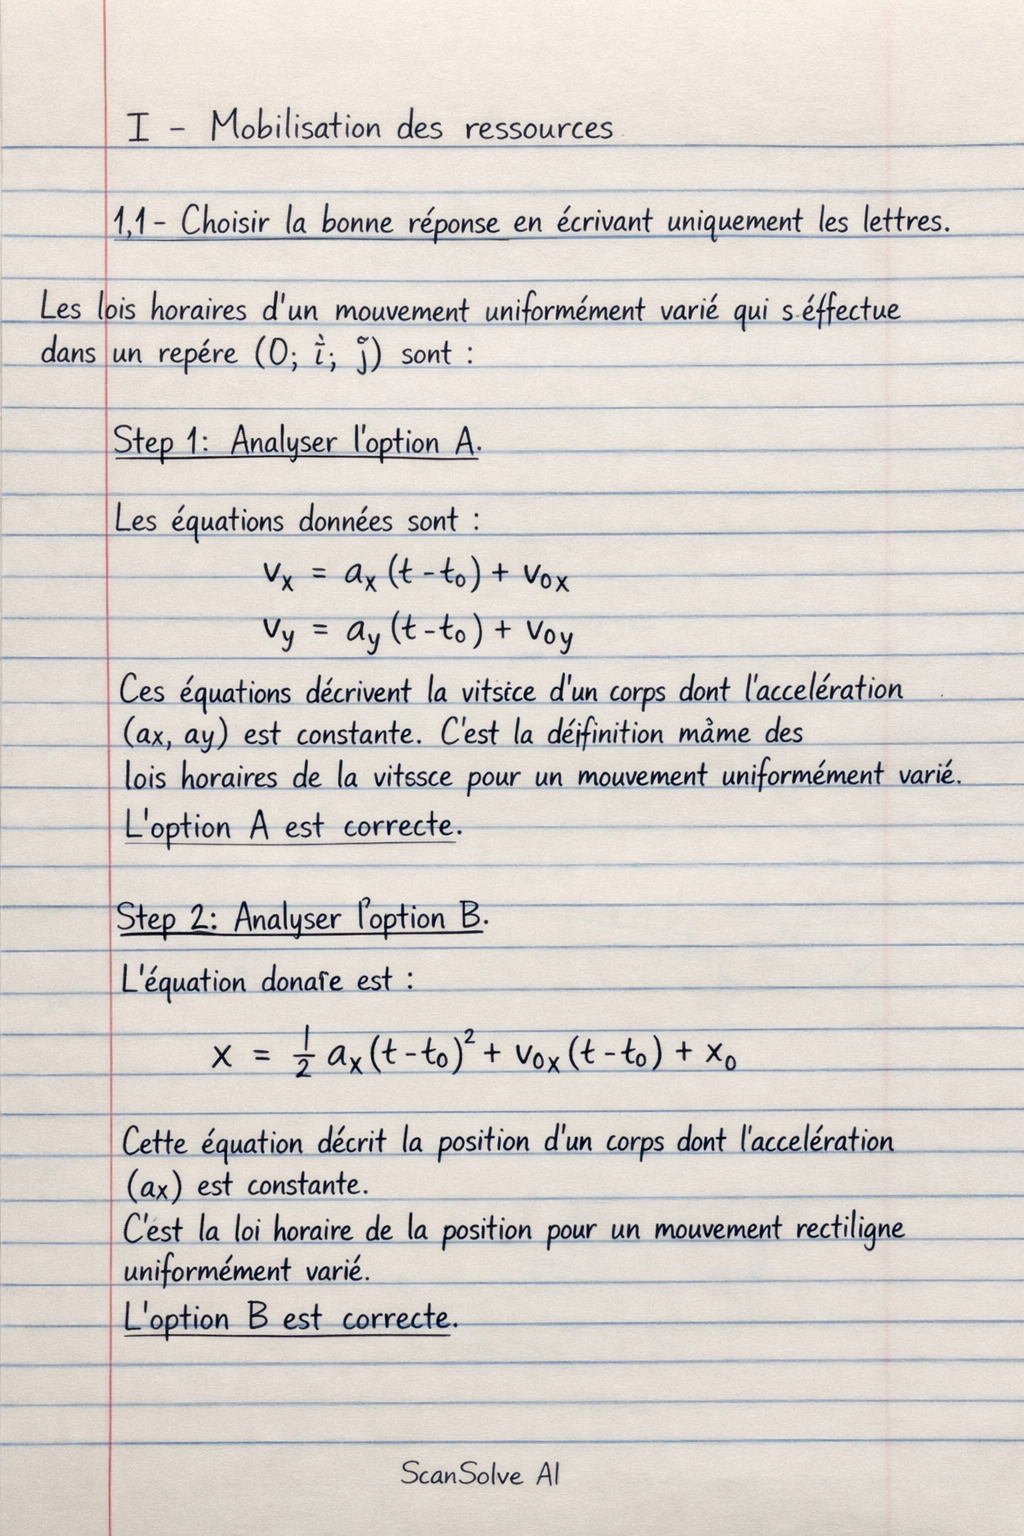 I - Mobilisation des ressources
1,1- Choisir la bonne réponse en écrivant uniquement les lettres.
Les lois horaires d'un mouvement uniformément varié qui s'éffectue
dans un repére (O; i; j) sont :
Step 1: Analyser l'option A.
Les équations données sont :
vₓ = aₓ (t - t₀) + v₀ₓ
v_y = a_y (t - t₀) + v₀y
Ces équations décrivent la vitsice d'un corps dont l'accelération
(ax, ay) est constante. C'est la déifinition màme des
lois horaires de la vitssce pour un mouvement uniformément varié.
L'option A est correcte.
Step 2: Analyser l'option B.
L'équation donaîe est :
x = ½ aₓ (t - t₀)² + v₀ₓ (t - t₀) + x₀
Cette équation décrit la position d'un corps dont l'accelération
(ax) est constante.
C'ést la loi horaire de la position pour un mouvement rectiligne
uniformément varié.
L'option B est correcte.
ScanSolve AI